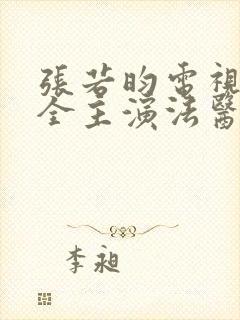 張若昀電視
全主演法醫
李昶